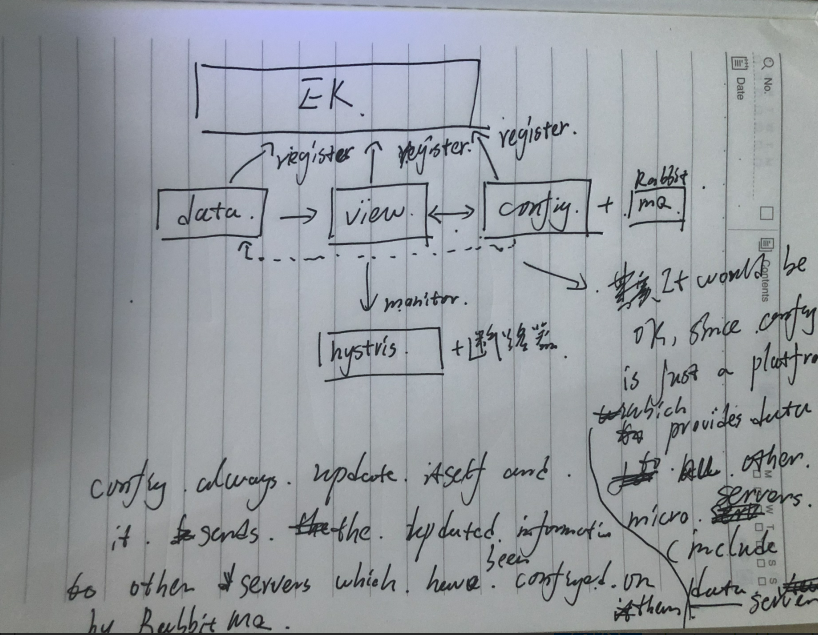 No.
Date
EK.
register
register.
register.
data.
view.
config.
+
Rabbit
MQ.
monitor.
hystris.
+断路器.
Contents
It would be
ok, since config
is just a platfro
which
provides data
to other.
micro servers.
(include
data server
config always update itself and
it sends the updated informatin
to other servers which have been configed on
them
by Rabbit MQ.